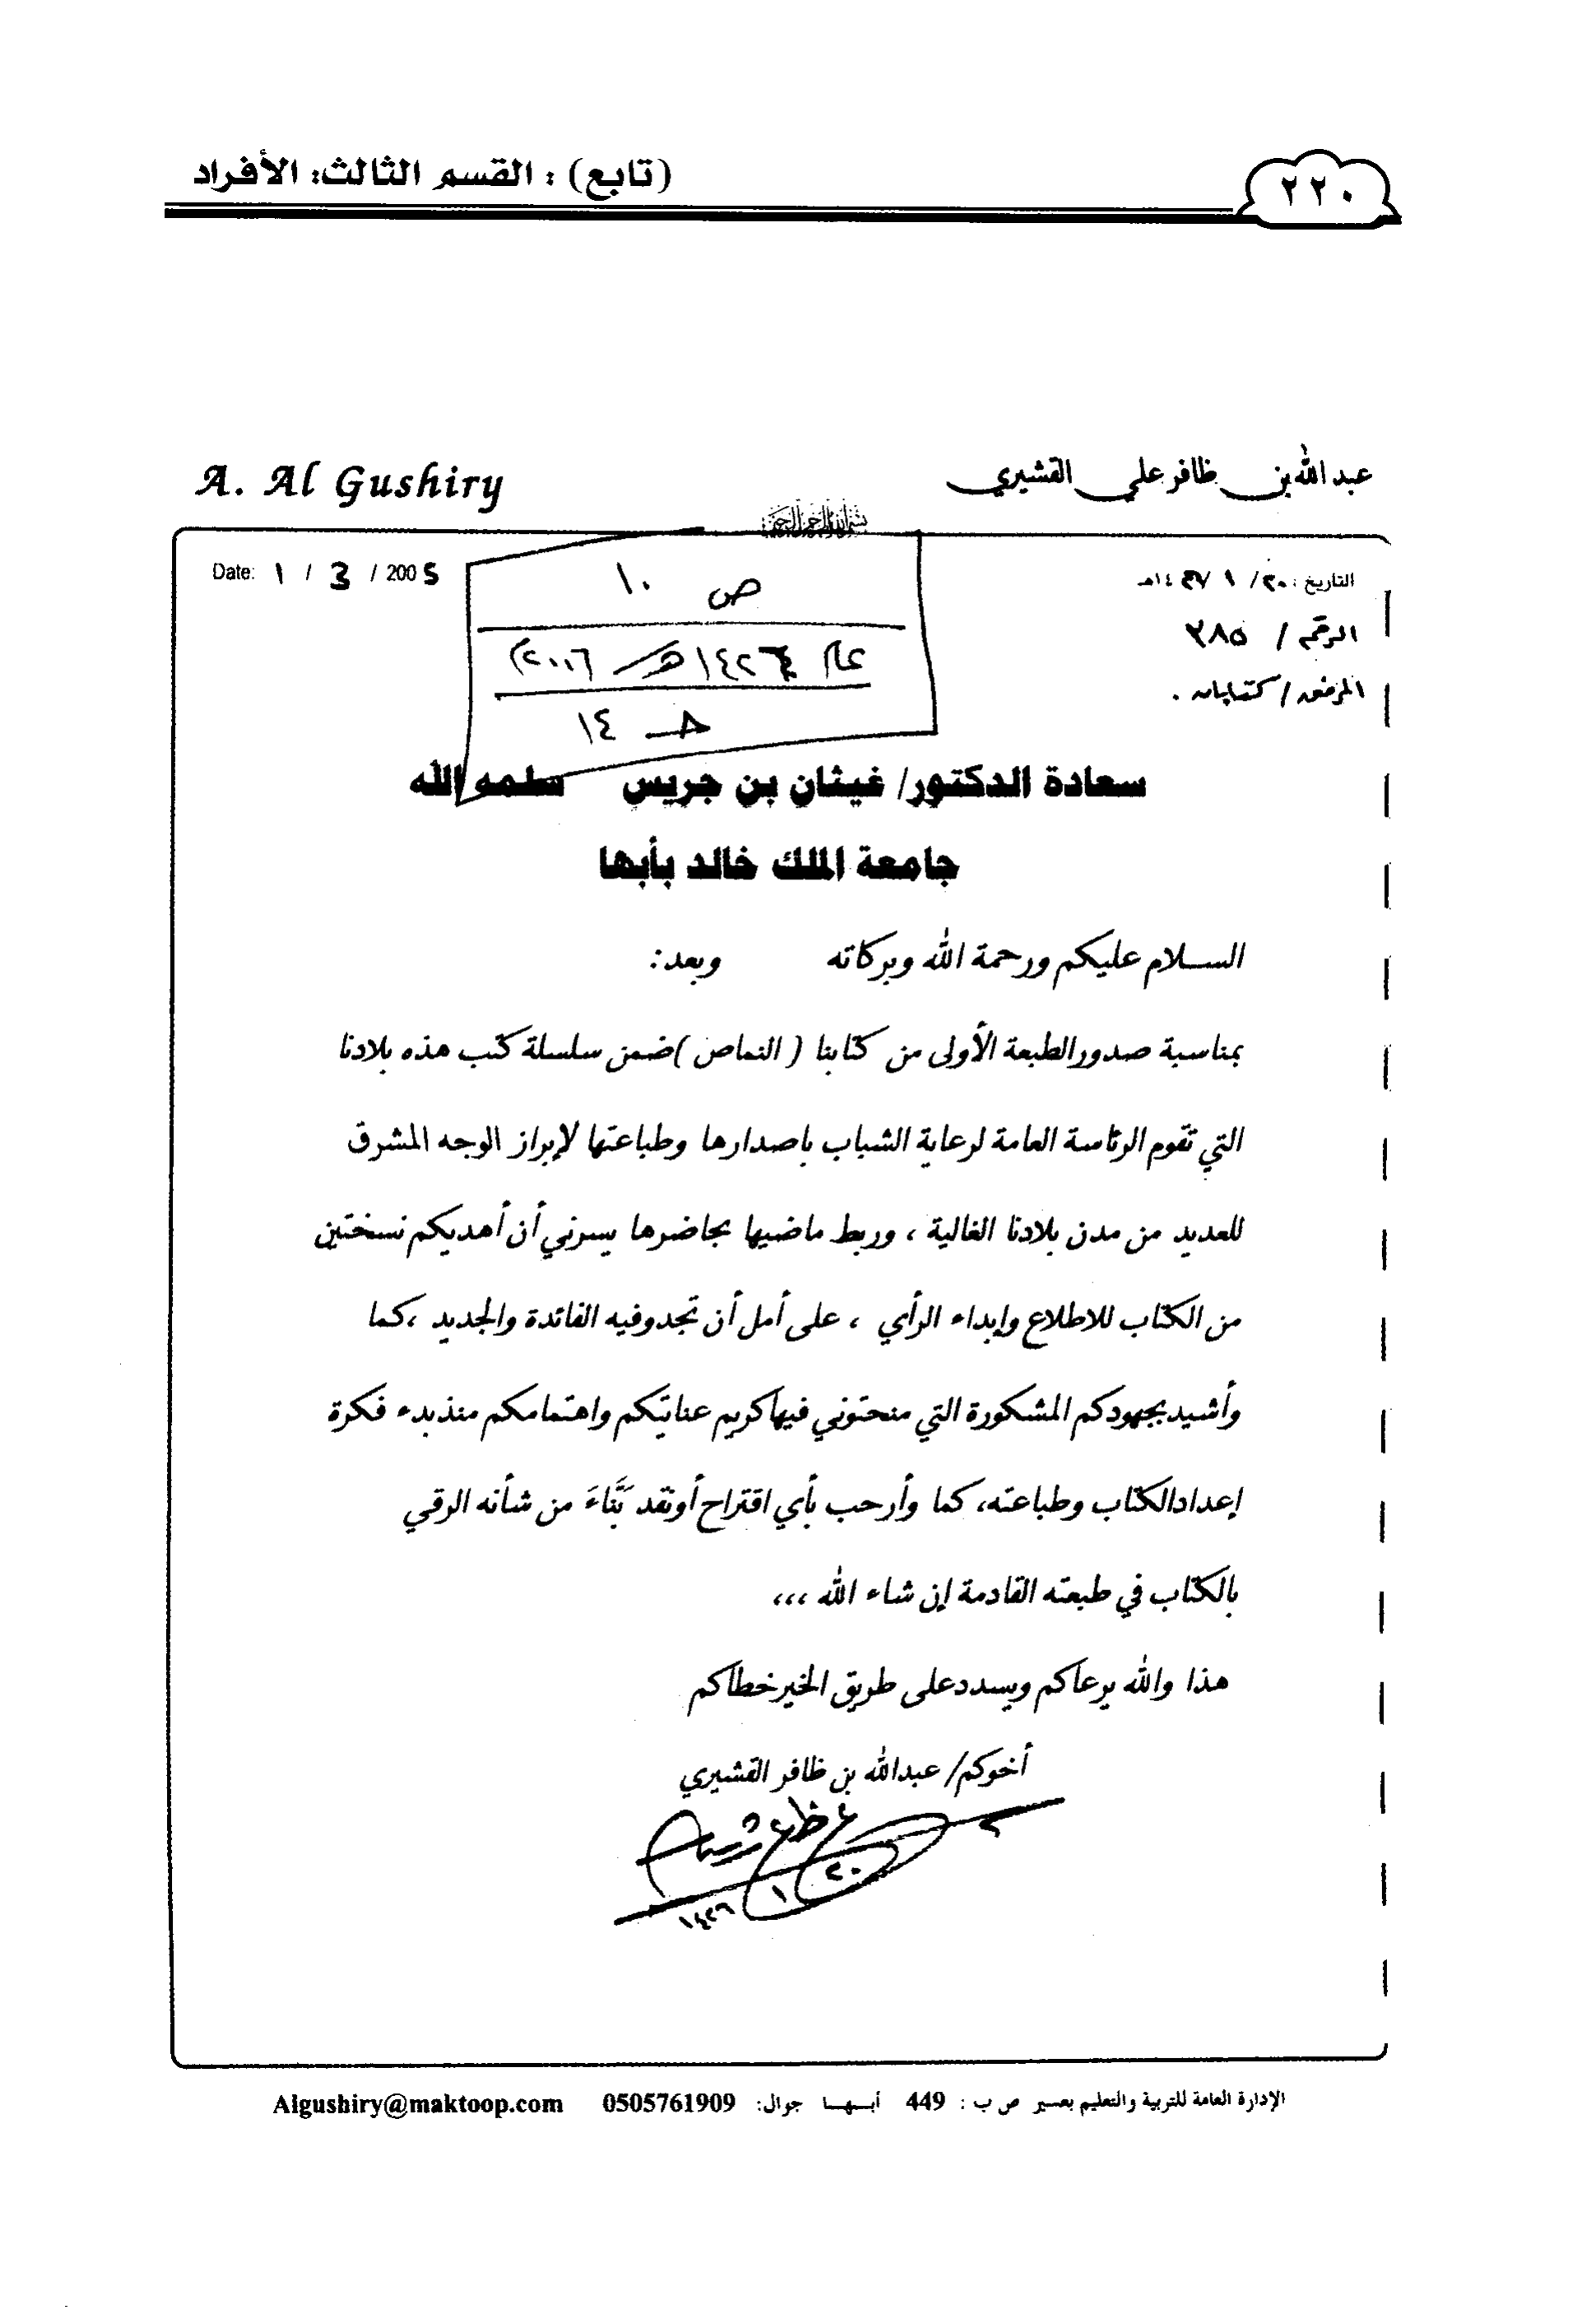 (تابع) : القسم الثالث: الأفراد
٢٢٠
A. Al Gushiry
عبدالله بن ظافر علي القشيري
بسم الله الرحمن الرحيم
Date: ١ / 3 / 2005
التاريخ : ٢٠/ ١ /
الرقم / ٣٨٥
ص ١٠
عام هـ ٢٠٠٦م
حـ ١٤
سعادة الدكتور/ غيثان بن جريس سلمه الله
جامعة الملك خالد بأبها
السلام عليكم ورحمة الله وبركاته وبعد:
بمناسبة صدور الطبعة الأولى من كتابنا ( النماص ) ضمن سلسلة كتب هذه بلادنا
التي تقوم الرئاسة العامة لرعاية الشباب بإصدارها وطباعتها لإبراز الوجه المشرق
للعديد من مدن بلادنا الغالية ، وربط ماضيها بحاضرها يسرني أن أهديكم نسختين
من الكتاب للاطلاع وإبداء الرأي ، على أمل أن تجدوفيه الفائدة والجديد ،كما
وأشيد بجهودكم المشكورة التي منحتوني فيها كريم عنايتكم واهتمامكم منذ بدء فكرة
إعداد الكتاب وطباعته، كما وأرحب بأي اقتراح أو نقد بَّناءَ من شأنه الرقي
بالكتاب في طبعته القادمة إن شاء الله ،،،
هذا والله يرعاكم ويسدد على طريق الخير خطاكم
أخوكم/ عبدالله بن ظافر القشيري
٢٠
١
١٤٢٦
الإدارة العامة للتربية والتعليم بعسير ص ب : 449 أبـهـا جوال: 0505761909 Algushiry@maktoop.com